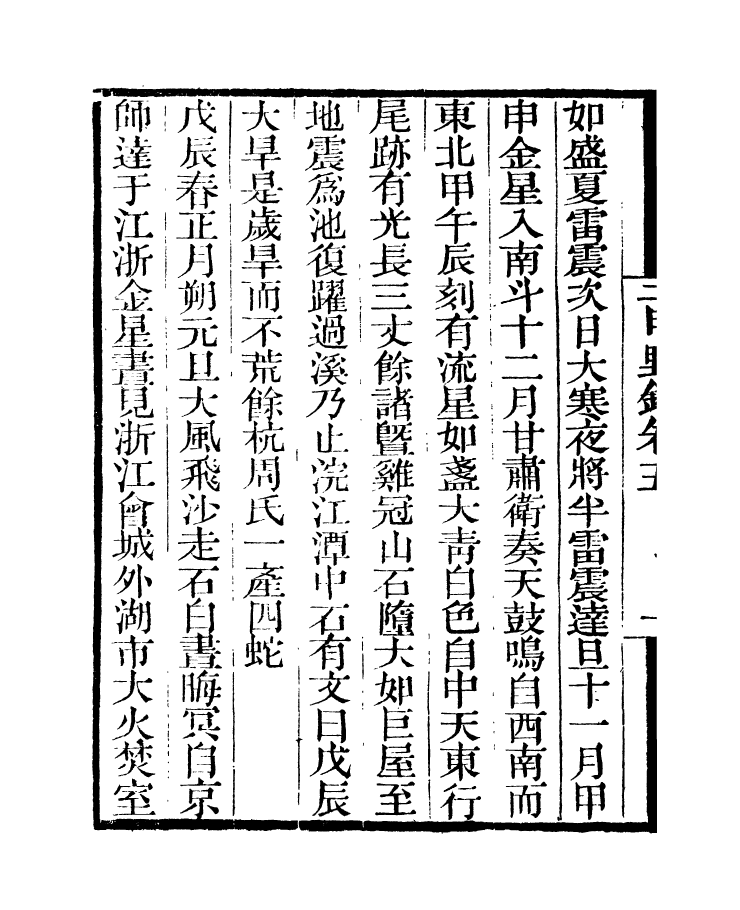 如盛夏雷震次日大寒夜將半雷震達旦十一月甲
申金星入南斗十二月甘肅衛奏天鼓鳴自西南而
東北甲午辰刻有流星如盞大青白色自中天東行
尾跡有光長三丈餘諸暨雞冠山石墮大如巨屋至
地震爲池復躍過溪乃止浣江潭中石有文曰戊辰
大旱是歲旱而不荒餘杭周氏一產四蛇
戊辰春正月朔元旦大風飛沙走石白晝晦冥自京
師達于江浙金星晝見浙江會城外湖市大火焚室